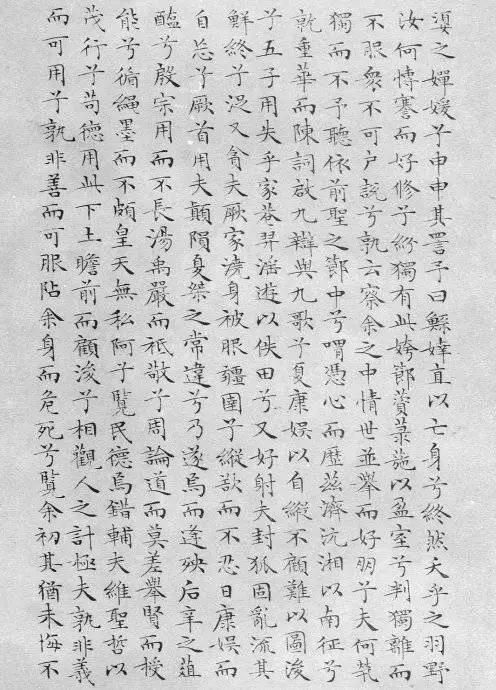 嬃之嬋媛兮申申其詈予曰鯀婞直以亡身兮終然夭乎之羽野
汝何博謇而好修兮紛獨有此姱節薋菉葹以盈室兮判獨離而
不服衆不可戶說兮孰云察余之中情世並舉而好朋兮夫何煢
獨而不予聽依前聖之節中兮喟憑心而歷茲濟沅湘以南征兮
就重華而陳詞啟九辯與九歌兮夏康娛以自縱不顧難以圖後
兮五子用失乎家巷羿淫遊以佚田兮又好射夫封狐固亂流其
鮮終兮浞又貪夫厥家澆身被服彊圉兮縱欲而不忍日康娛而
自忘兮厥首用夫顛隕夏桀之常違兮乃遂焉而逢殃后辛之菹
醢兮殷宗用而不長湯禹嚴而祗敬兮周論道而莫差舉賢而授
能兮循繩墨而不頗皇天無私阿兮覽民德焉錯輔夫維聖哲以
茂行兮苟德用此下土瞻前而顧後兮相觀人之計極夫孰非義
而可用兮孰非善而可服阽余身而危死兮覽余初其猶未悔不